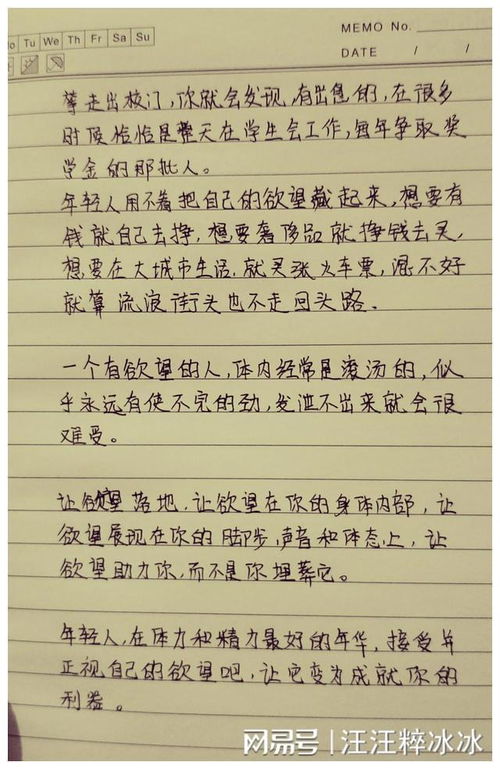 MEMO No.
Mo Tu We Th Fr Sa Su
DATE / /
等走出校门，你就会发现，有出息的，在很多
时候恰恰是整天在学生会工作，每年争取奖
学金的那批人。
年轻人用不着把自己的欲望藏起来，想要有
钱就自己去挣，想要奢侈品就挣钱去买，
想要在大城市生活，就买张火车票，混不好
就算流浪街头也不走回头路．
一个有欲望的人，体内经常是滚汤的，似
乎永远有使不完的劲，发泄不出来就会很
难受。
让欲望落地，让欲望在你的身体内部，让
欲望展现在你的脚步，声音和体态上，让
欲望助力你，而不是你埋葬它。
年轻人，在体力和精力最好的年华，接受并
正视自己的欲望吧，让它变为成就你的
利器。
网易号 | 汪汪粹冰冰